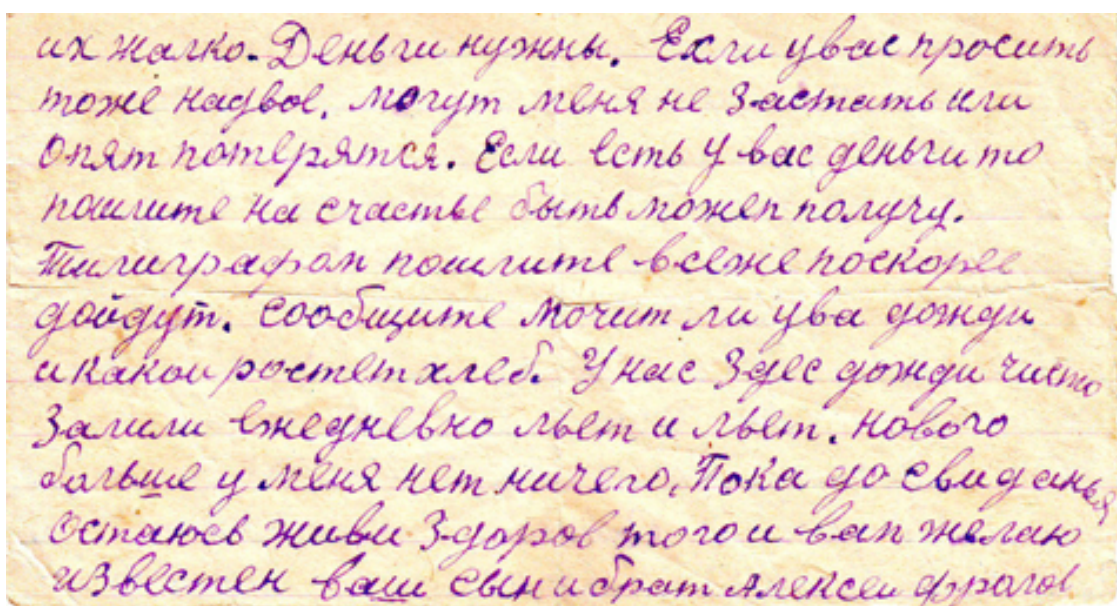 их жалко. Деньги нужны. Если у вас просить
тоже надвое, могут меня не застать или
опят потерятся. Если есть у вас деньги то
пошлите на счастье быть может получу.
Тилиграфом пошлите всеже поскорее
дойдут. Сообщите мочит ли у ва дожди
и какои ростет хлеб. У нас здес дожди чисто
залили ежедневно льет и льет. нового
больше у меня нет ничего. Пока до свиданья
Остаюсь живи здоров того и вам желаю
известен ваш сын и брат Алексеи Фролов